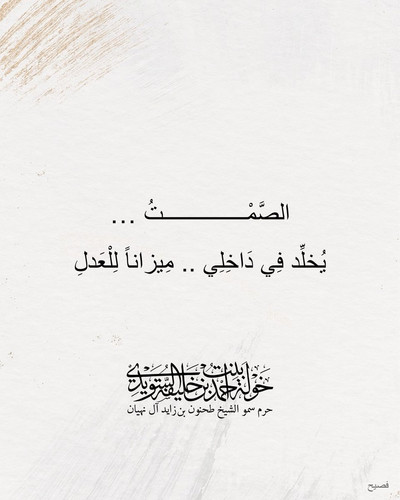 الصَّمْـــــــــــــتُ ...
يُخلِّد فِي دَاخِلِي .. مِيزاناً لِلْعَدلِ
خولة بنت أحمد بن خليفة السويدي
حرم سمو الشيخ طحنون بن زايد آل نهيان
فصيح